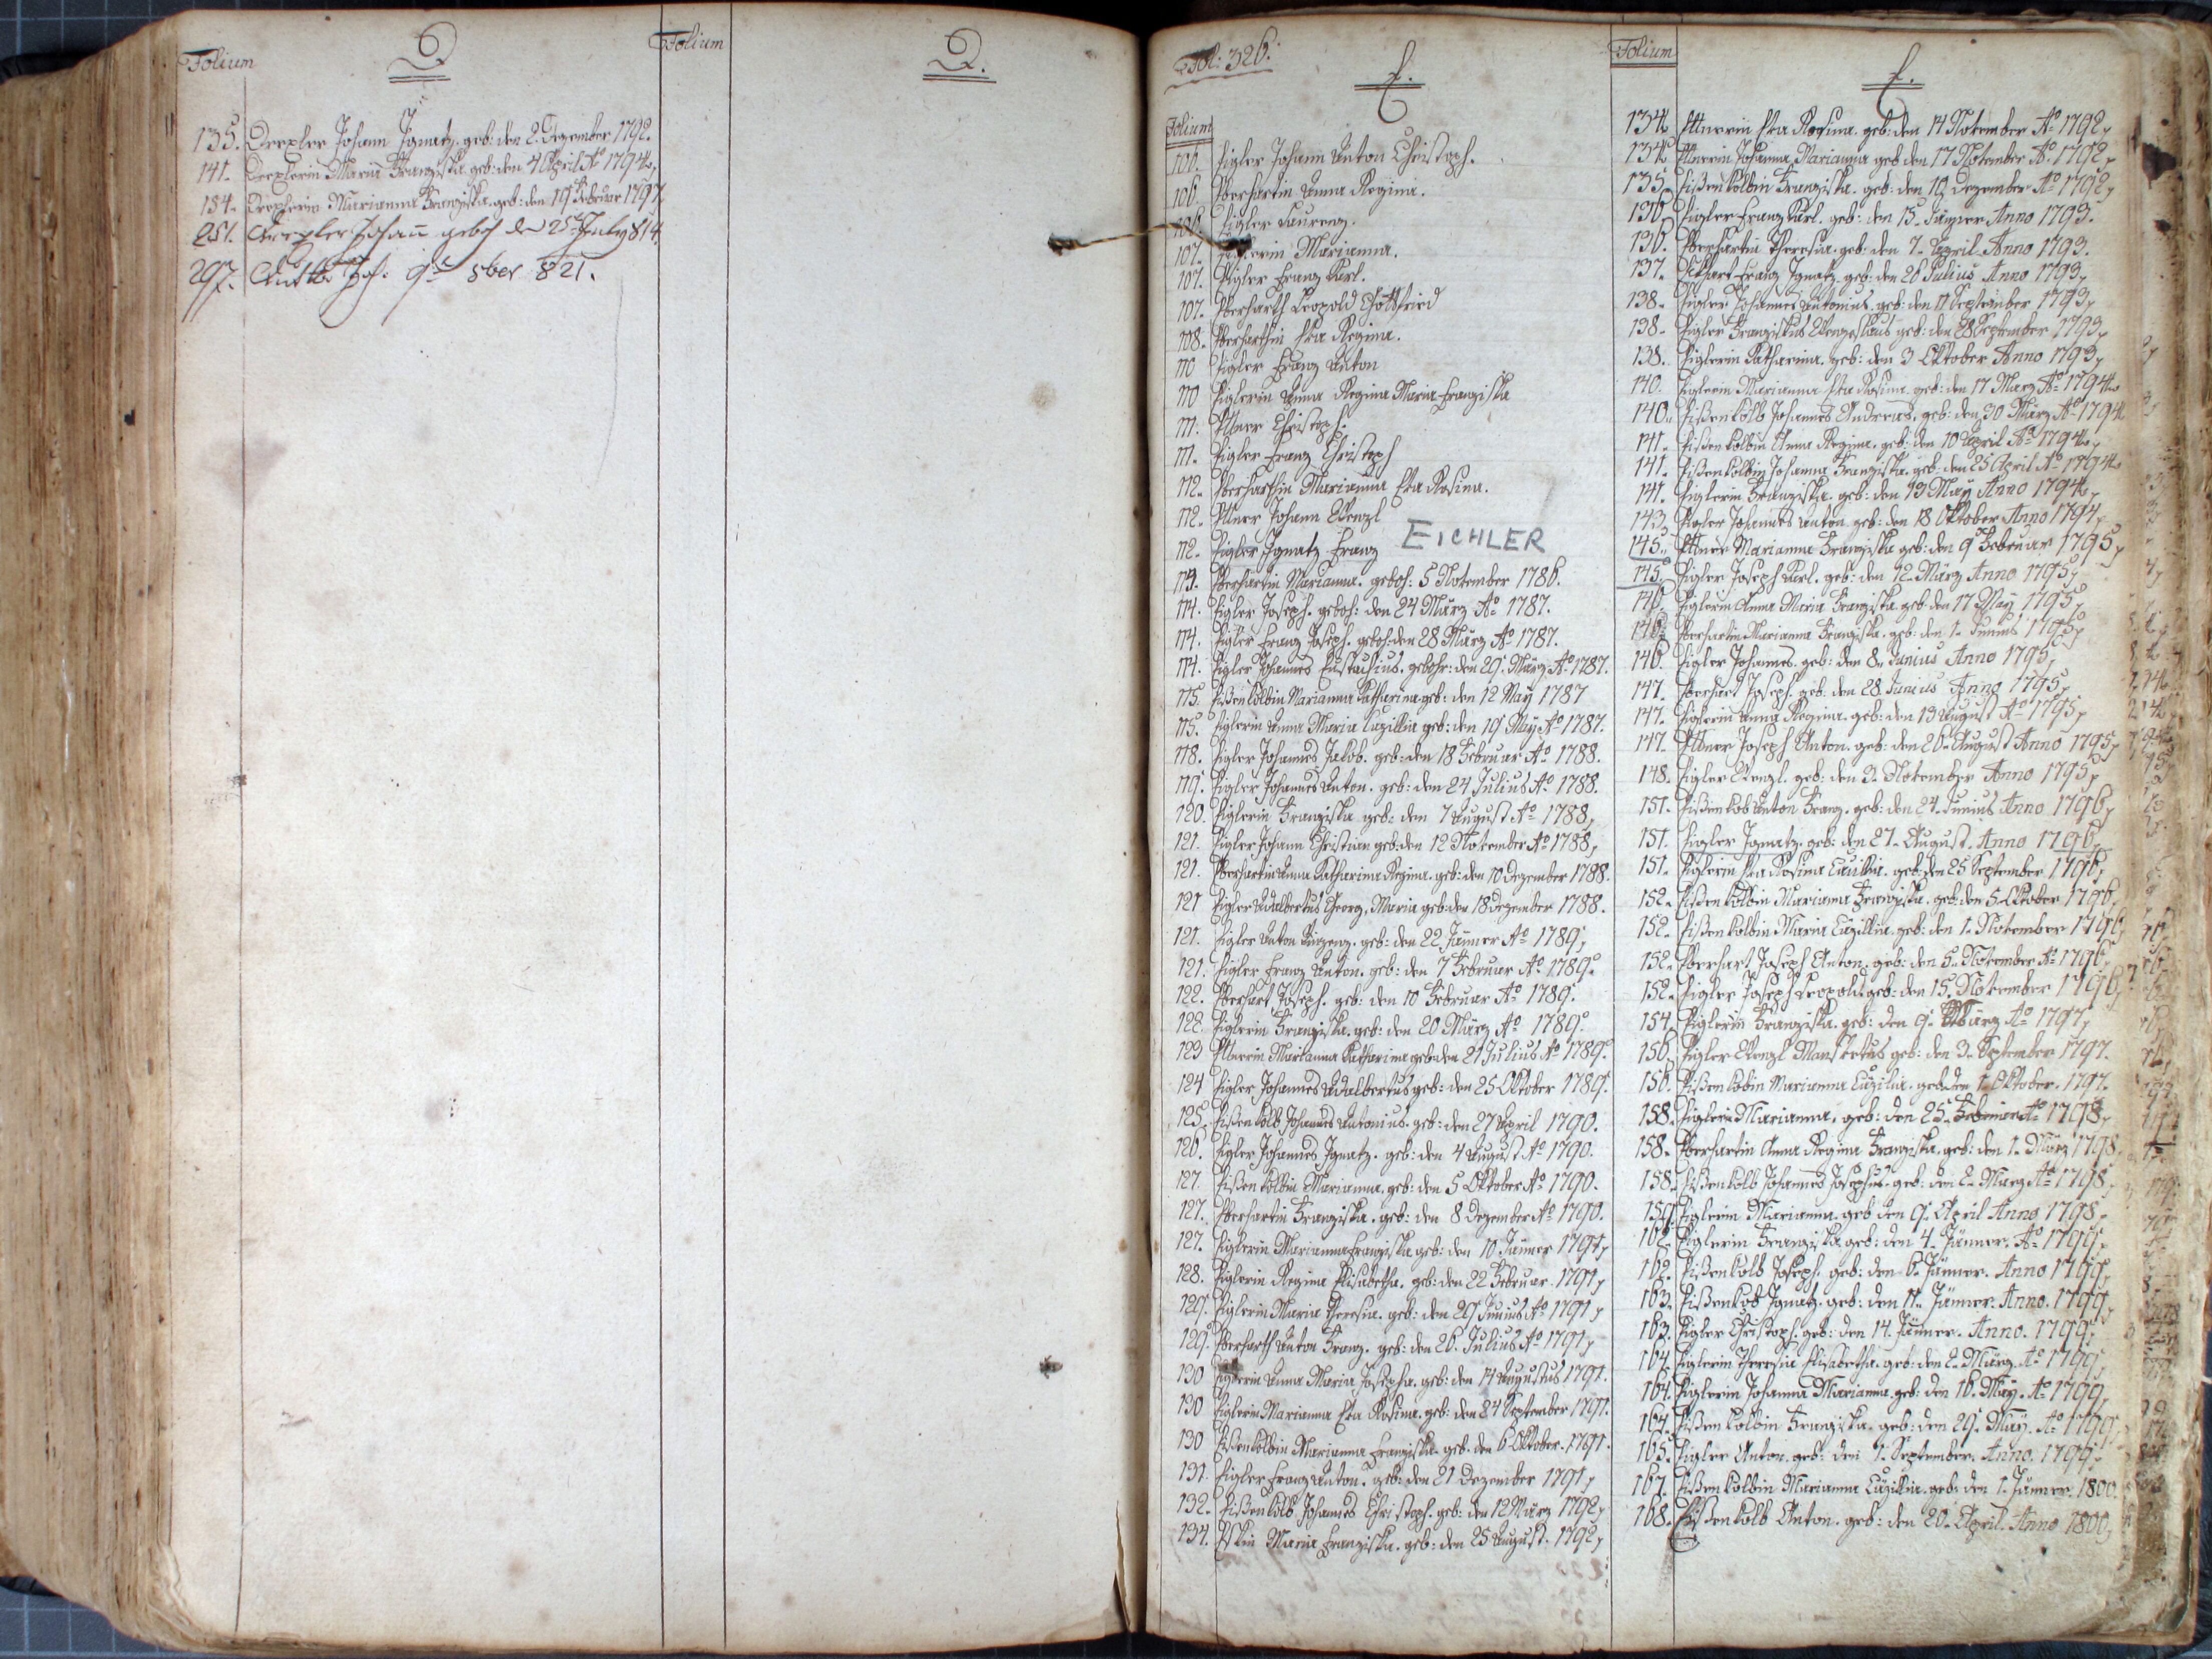 Folium
D
Folium
D.
135. Drexler Johann Ignatz. geb: den 2. Dezember 1792.
141. Drexlerin Maria Franziska. geb: den 4 April Aº 1794.
154. Drexlerin Marianna Franziska. geb: den 19 Februar 1797
251. Drexler Johann geboh den 25 July 814
297. Joh: 9 8ber 821.
Fol: 326.
E.
Folium
E.
Folium
106. Eigler Johann Anton Christoph.
106 Eberhartin Anna Regina.
106. Eigler Laurenz.
107. Marianna.
107. Eigler Franz Karl.
107. Eberharth Leopold Gottfried
108. Eberharthin Eva Regina.
110 Eigler Franz Anton
110 Eiglerin Anna Regina Maria Franziska
111. Ettner Christoph.
111. Eigler Franz Christoph
112. Eberharthin Marianna Eva Rosina.
112. Ettner Johann Wenzl
112. Eigler Ignatz Franz EICHLER
113. Eberhartin Marianna. geboh: 5 November 1786.
114. Eigler Joseph. geboh: den 24 März Aº 1787.
114. Eigler Franz Joseph. geboh: den 28 März Aº 1787.
114. Eigler Johannes Eustachius. gebohr: den 29. März Aº 1787.
115. Eißenkolbin Marianna Katharina geb: den 12 May 1787
115. Eiglerin Anna Maria Cäzillia geb: den 19 May Aº 1787.
118. Eigler Johannes Jakob. geb: den 18 Februar Aº 1788.
119. Eigler Johannes Anton. geb: den 24 Julius Aº 1788.
120. Eiglerin Franziska geb: den 7 August Aº 1788,
121. Eigler Johann Christian geb: den 12 November Aº 1788,
121. Eberhartin Anna Katharina Regina. geb: den 10 Dezember 1788.
121 Eigler Adalbertus Georg, Maria geb: den 18 Dezember 1788.
121. Eigler Anton Vinzenz. geb: den 22 Jänner Aº 1789,
121. Eigler Franz Anton. geb: den 7 Februar Aº 1789.
122. Eberhart Joseph. geb: den 10 Februar Aº 1789.
122. Eiglerin Franziska. geb: den 20 März Aº 1789.
123 Ettnerin Marianna Katharina geb: den 21 Julius Aº 1789.
124 Eigler Johannes Adalbertus geb: den 25 Oktober 1789.
125. Eißenkolb Johannes Antonius. geb: den 27 April 1790.
126. Eigler Johannes Ignatz. geb: den 4 August Aº 1790.
127. Eißenkolbin Marianna. geb: den 5 Oktober Aº 1790.
127. Eberhartin Franziska. geb: den 8 Dezember Aº 1790.
127. Eiglerin Marianna Franziska geb: den 10 Jänner 1791,
128. Eiglerin Regina Elisabetha. geb: den 22 Februar. 1791,
129. Eiglerin Maria Theresia. geb: den 29 Junius Aº 1791,
129. Eberharth Anton Franz. geb: den 26. Julius Aº 1791,
130 Eiglerin Anna Maria Josepha. geb: den 14 Augustus 1791.
130 Eiglerin Marianna Eva Rosina. geb: den 24 September 1791.
130 Eißenkolbin Marianna Franziska. geb: den 6 Oktober. 1791.
131. Eigler Franz Anton. geb: den 21 Dezember 1791,
132. Eißenkolb Johannes Christoph. geb: den 12 März 1792,
134. Maria Franziska. geb: den 25 August. 1792,
134. Ettnerin Eva Rosina. geb: den 14 November Aº 1792,
134. Ettnerin Johanna Marianna geb den 17 November Aº 1792,
135. Eißenkolbin Franziska. geb: den 19 Dezember Aº 1792,
136. Eigler Franz Karl. geb: den 15. Jänner Anno 1793.
136. Eberhartin Theresia. geb: den 7. April Anno 1793.
137. Eckhart Franz Ignatz. geb: den 26 Julius Anno 1793,
138. Eigler Johannes Antonius. geb: den 17 September 1793,
138. Eigler Franziskus Wenzeslaus geb: den 28 September 1793,
138. Eiglerin Katharina. geb: den 3 Oktober Anno 1793,
140. Eiglerin Marianna Eva Rosina. geb: den 17 März Aº 1794.
140. Eißenkolb Johannes Andreas. geb: den 30 März Aº 1794
141. Eißenkolbin Anna Regina. geb: den 10 April Aº 1794,
141. Eißenkolbin Johanna Franziska. geb: den 25 April Aº 1794.
141. Eiglerin Franziska. geb: den 19 May Anno 1794,
143. Eigler Johannes Anton. geb: den 18 Oktober Anno 1794,
145. Ettner Marianna Franziska geb: den 9 Februar 1795,
145. Eigler Joseph Karl. geb: den 12. März Anno 1795,
146. Eiglerin Anna Maria Franziska. geb: den 17 May 1795,
146. Eberhartin Marianna Franziska. geb: den 1. Junius 1795,
146. Eigler Johannes. geb: den 8. Junius Anno 1795,
147. Eberhart Joseph. geb: den 28 Junius Anno 1795,
147. Eiglerin Anna Regina. geb: den 19 August Aº 1795,
147. Ettner Joseph Anton. geb: den 26. August Anno 1795,
148. Eigler Wenzl. geb: den 3. November Anno 1795,
151. Eißenkolb Anton Franz. geb: den 24. Junius Anno 1796,
151. Eigler Ignatz. geb: den 27. August. Anno 1796,
151. Eiglerin Eva Rosina Cäzillia. geb: den 25 September 1796,
152. Eißenkolbin Marianna Franziska. geb: den 5. Oktober 1796,
152. Eißenkolbin Maria Cäzillia. geb: den 1. November 1796,
152. Eberhart Joseph Anton. geb: den 5. November Aº 1796,
152. Eigler Joseph Leopold. geb: den 15. November 1796,
154. Eiglerin Franziska. geb: den 9. März Aº 1797,
156. Eigler Wenzl Mansvetus geb: den 3. September 1797.
156. Eißenkolbin Marianna Cäzilia. geb: den 1. Oktober. 1797.
158. Eiglerin Marianna. geb: den 25. Februar Aº 1798,
158. Eberhartin Anna Regina Franziska. geb: den 1. März 1798
158. Eißenkolb Johannes Josephus. geb: den 2. März Aº 1798,
159. Eiglerin Marianna. geb den 9. April Anno 1798,
162. Eiglerin Franziska geb: den 4. Jänner. Aº 1799,
162. Eißenkolb Joseph. geb: den 6. Jänner. Anno 1799,
163. Eißenkolb Ignatz. geb: den 11. Jänner. Anno. 1799,
163. Eigler Christoph. geb: den 14. Jänner. Anno. 1799,
164. Eiglerin Theresia Elisabetha. geb: den 2. März. Aº 1799,
164. Eiglerin Johanna Marianna. geb: den 16. May. Aº 1799,
164. Eißenkolbin Franziska. geb: den 29. May. Aº 1799,
165. Eigler Anton. geb: den 1. September. Anno. 1799,
167. Eißenkolbin Marianna Cäzillia. geb: den 1. Jänner. 1800.
168. Eißenkolb Anton. geb: den 20. April. Anno 1800,